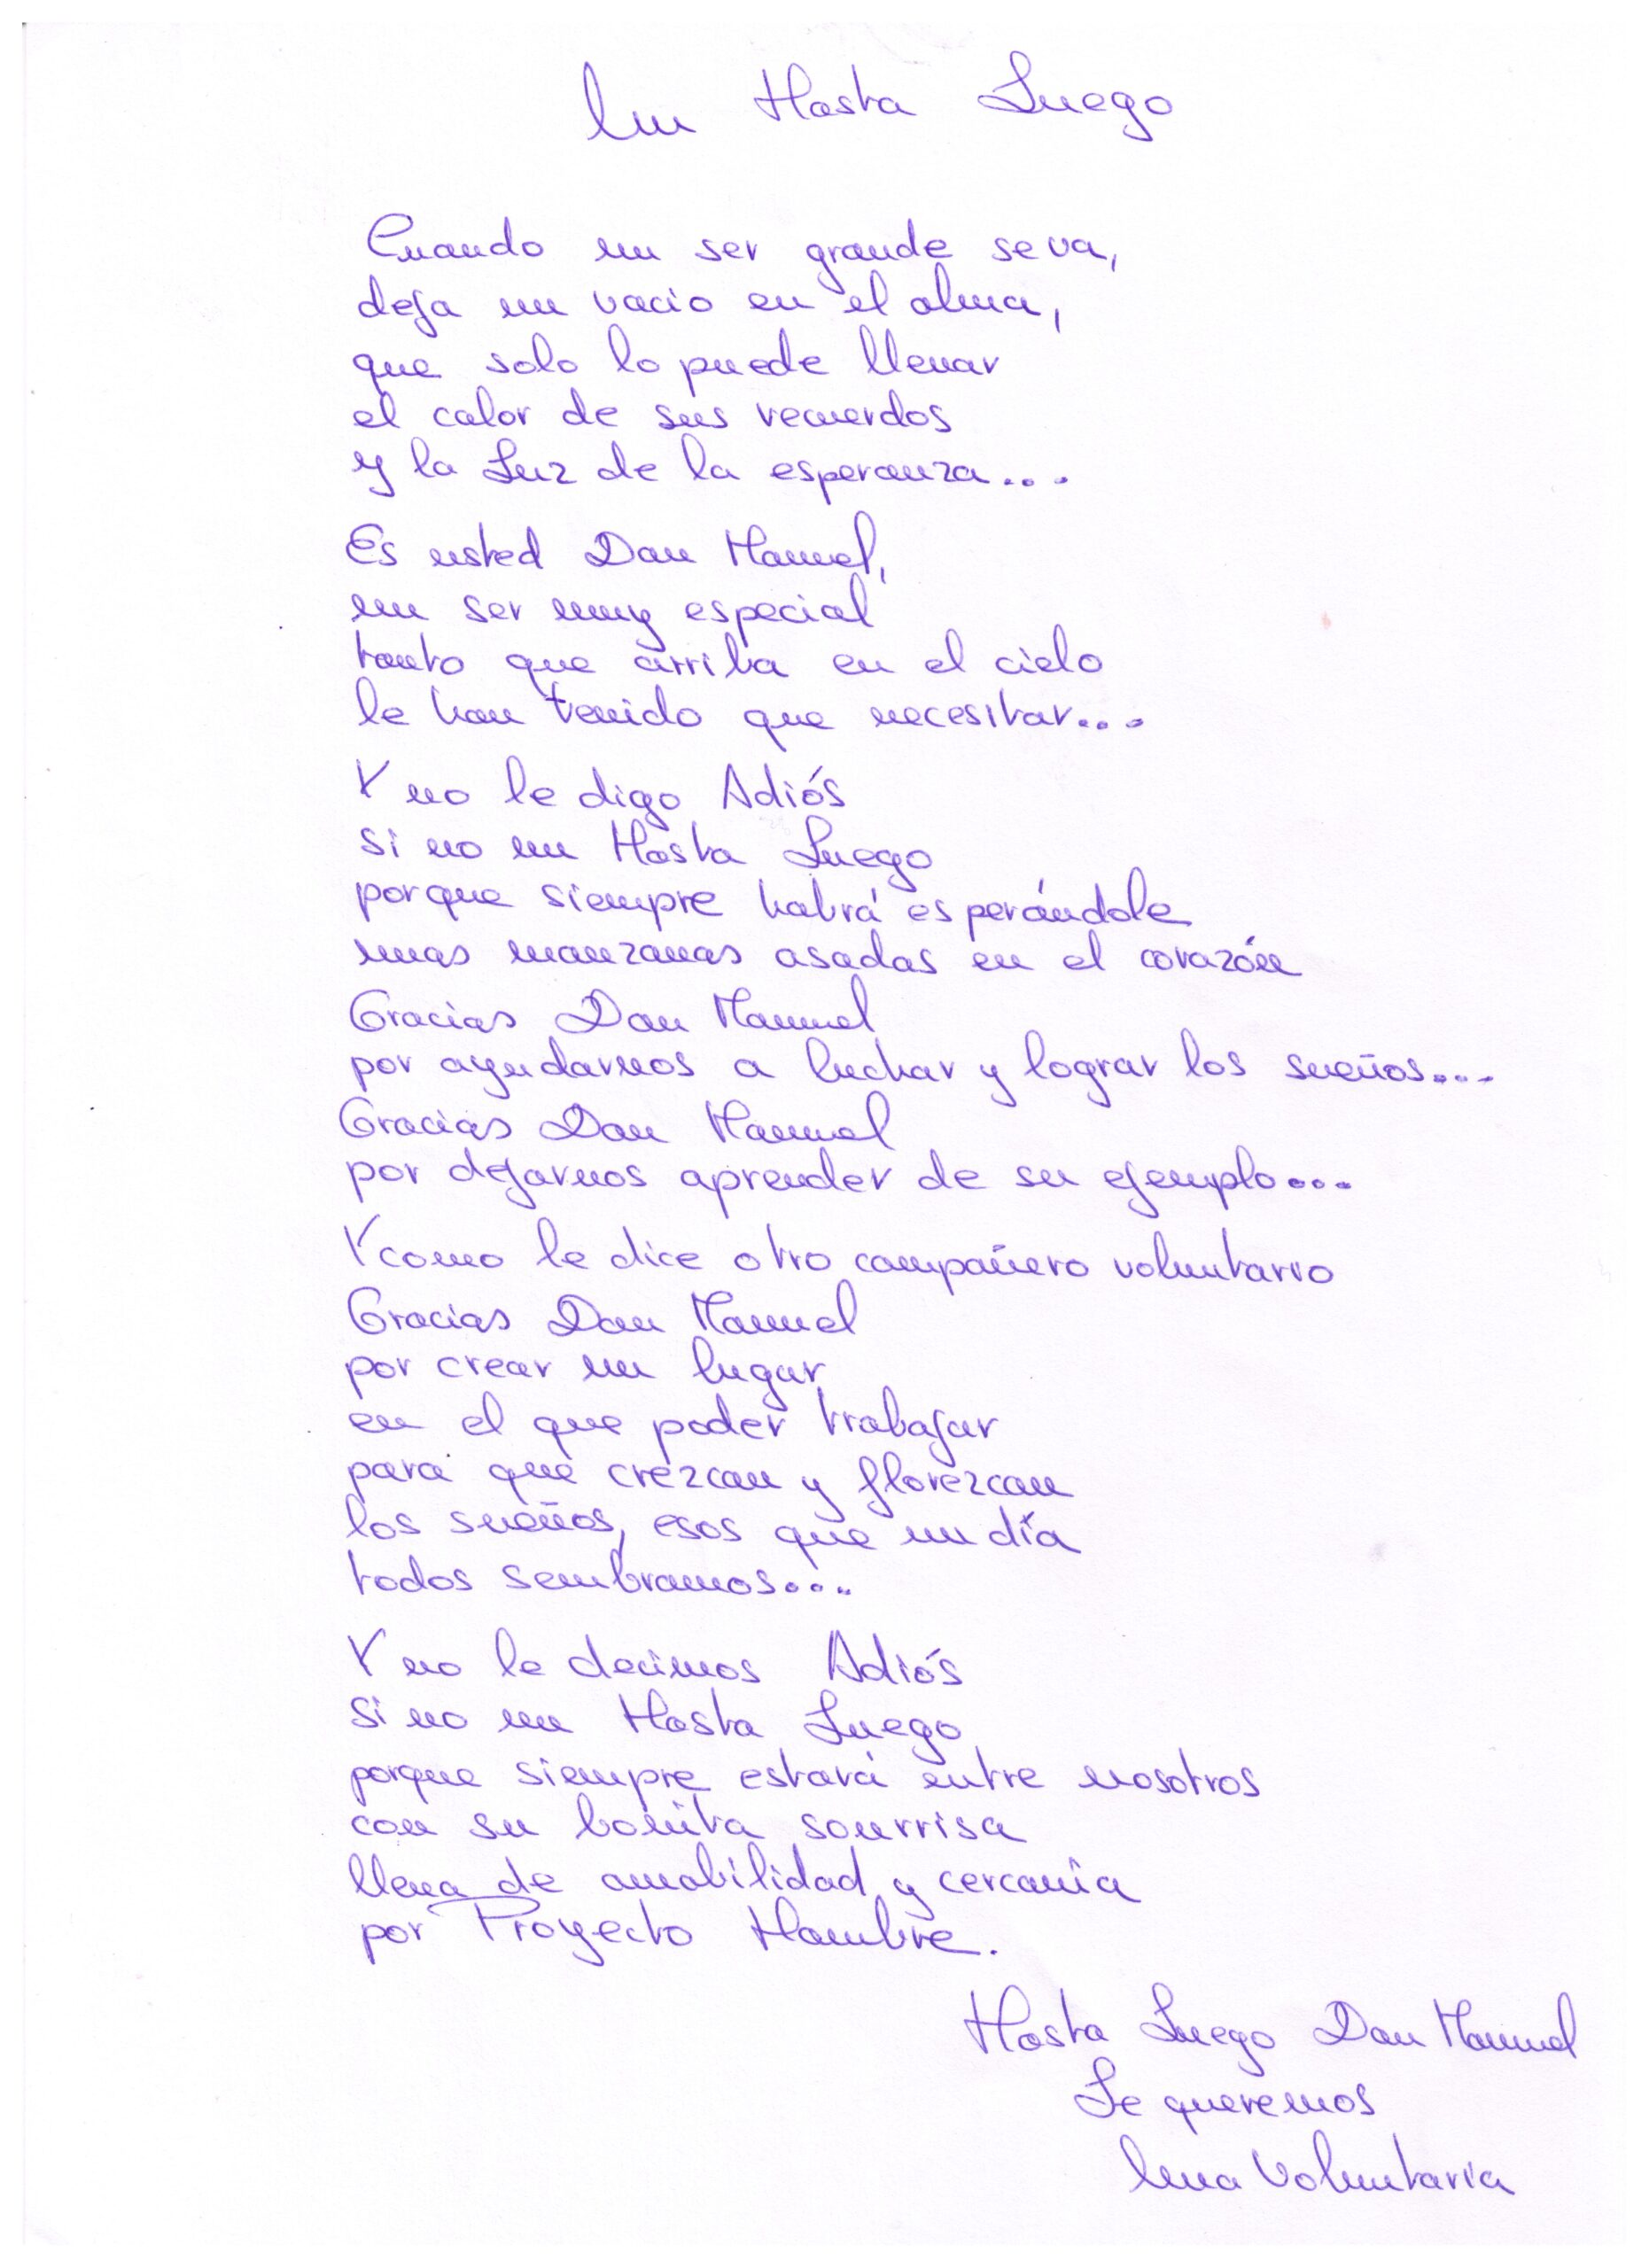 Un Hasta Luego
Cuando un ser grande se va,
deja un vacio en el alma,
que solo lo puede llenar
el calor de sus recuerdos
y la Luz de la esperanza...
Es usted Don Manuel,
un ser muy especial
tanto que arriba en el cielo
le han tenido que necesitar...
Y no le digo Adiós
si no un Hasta Luego
porque siempre habrá esperándole
unas manzanas asadas en el corazón
Gracias Don Manuel
por ayudarnos a luchar y lograr los sueños...
Gracias Don Manuel
por dejarnos aprender de su ejemplo...
Y como le dice otro compañero voluntario
Gracias Don Manuel
por crear un lugar
en el que poder trabajar
para que crezcan y florezcan
los sueños, esos que un día
todos sembramos...
Y no le decimos Adiós
si no un Hasta Luego
porque siempre estará entre nosotros
con su bonita sonrrisa
llena de amabilidad y cercanía
por Proyecto Hombre.
Hasta Luego Don Manuel
Le queremos
Una Voluntaria